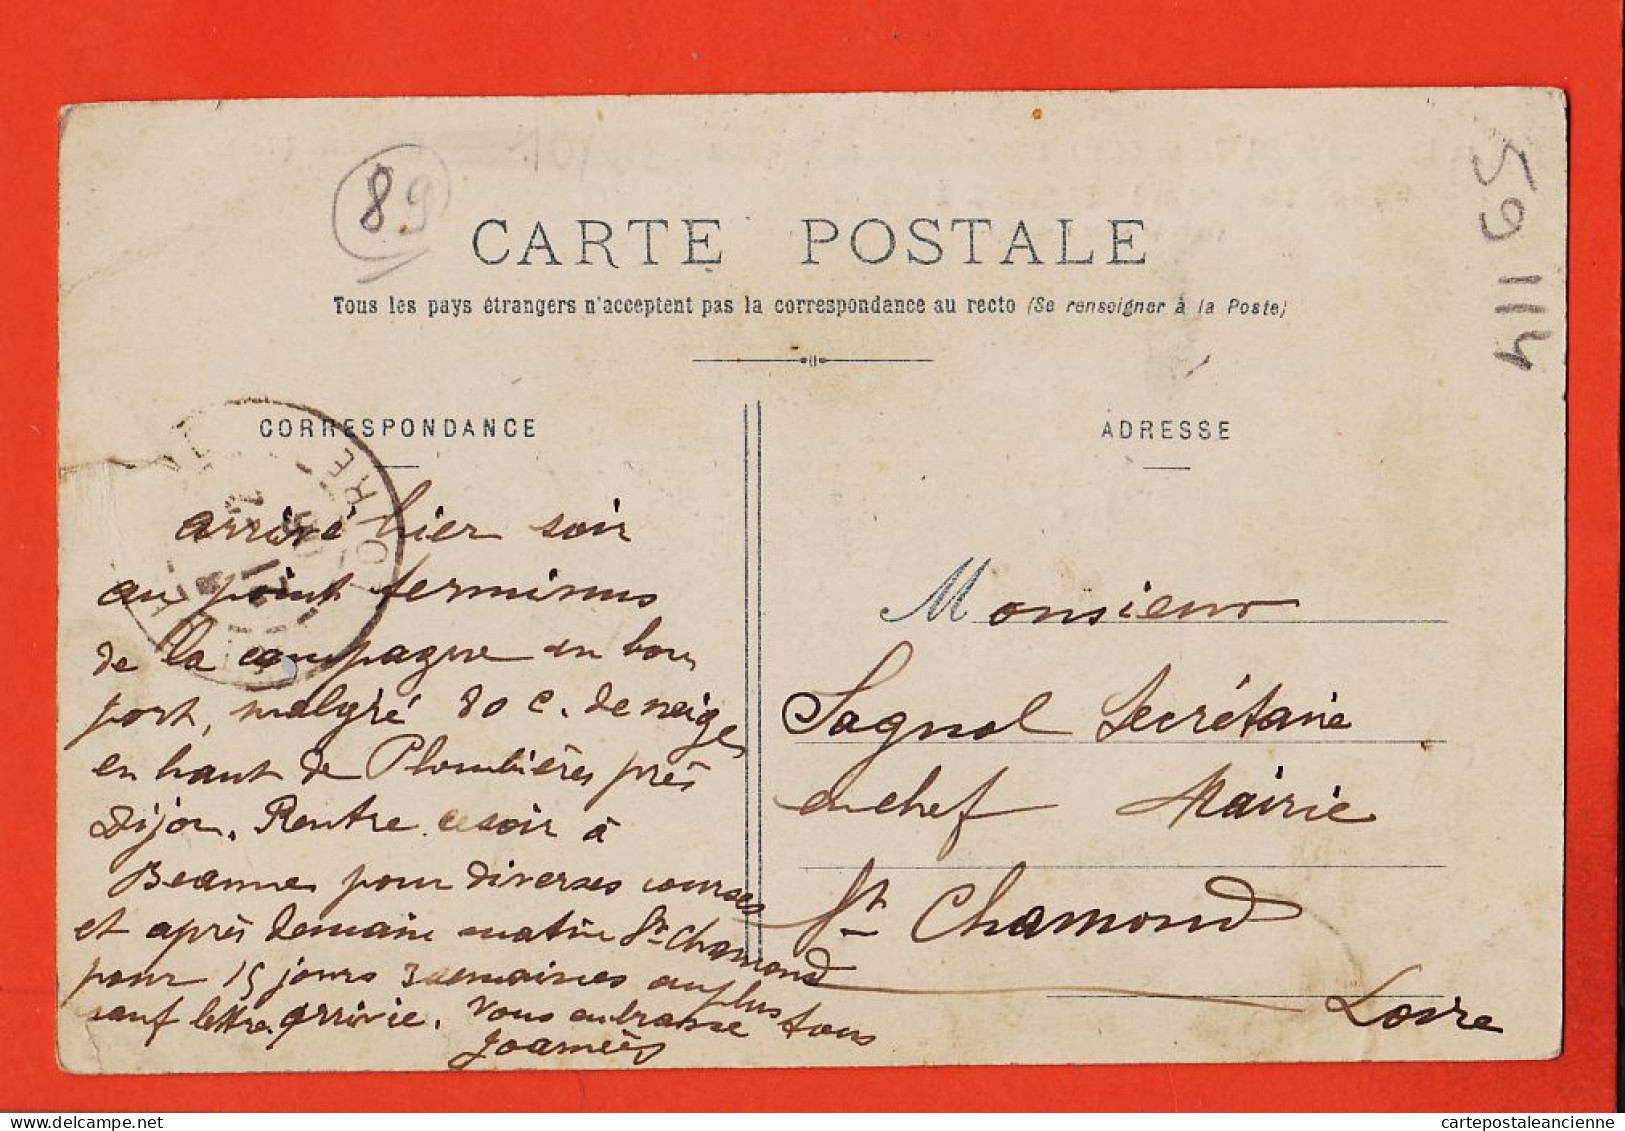 89
59 114
CARTE POSTALE
Tous les pays étrangers n'acceptent pas la correspondance au recto (Se renseigner à la Poste)
CORRESPONDANCE
arrivé hier soir
au point terminus
de la campagne en bon
port, malgré 80 c. de neige
en haut de Plombières près
Dijon. Rentre ce soir à
Beaune pour diverses courses
et après demain matin St Chamond
pour 15 jours 3 semaines au plus
sauf lettre arrivie. Vous embrasse tous
Joannès
ADRESSE
Monsieur
Sagnol Secrétaire
en chef Mairie
St Chamond
Loire
LOIRE
cartepostaleancienne
www.delcampe.net